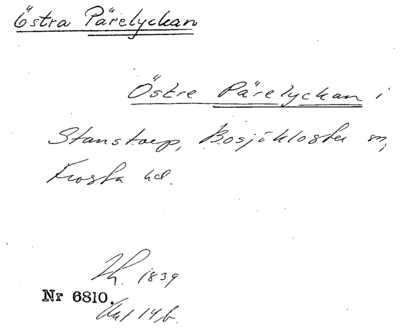 Östra Pärelyckan
Östre Pärelyckan i
Stanstorp, Bosjökloster sn,
Frosta hd.
1839
Nr 6810.